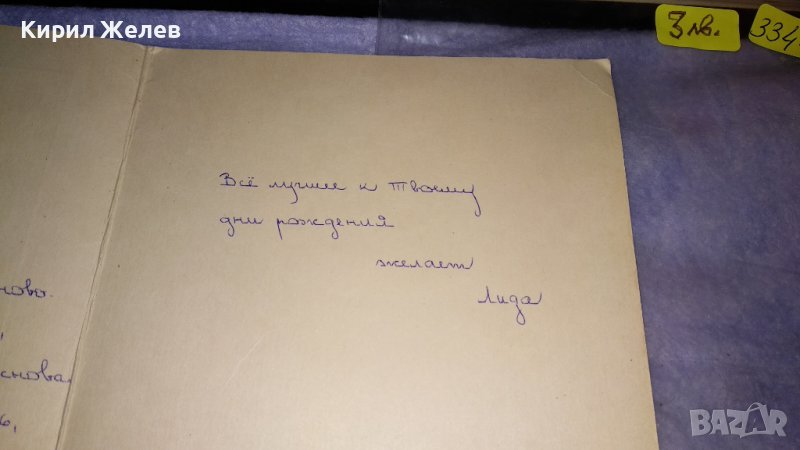 Кирил Желев
3 лв.
334
Всё лучшее к твоему
дни рождения
желает
Лида
ново.
,
снова,
ь,
BAZAR